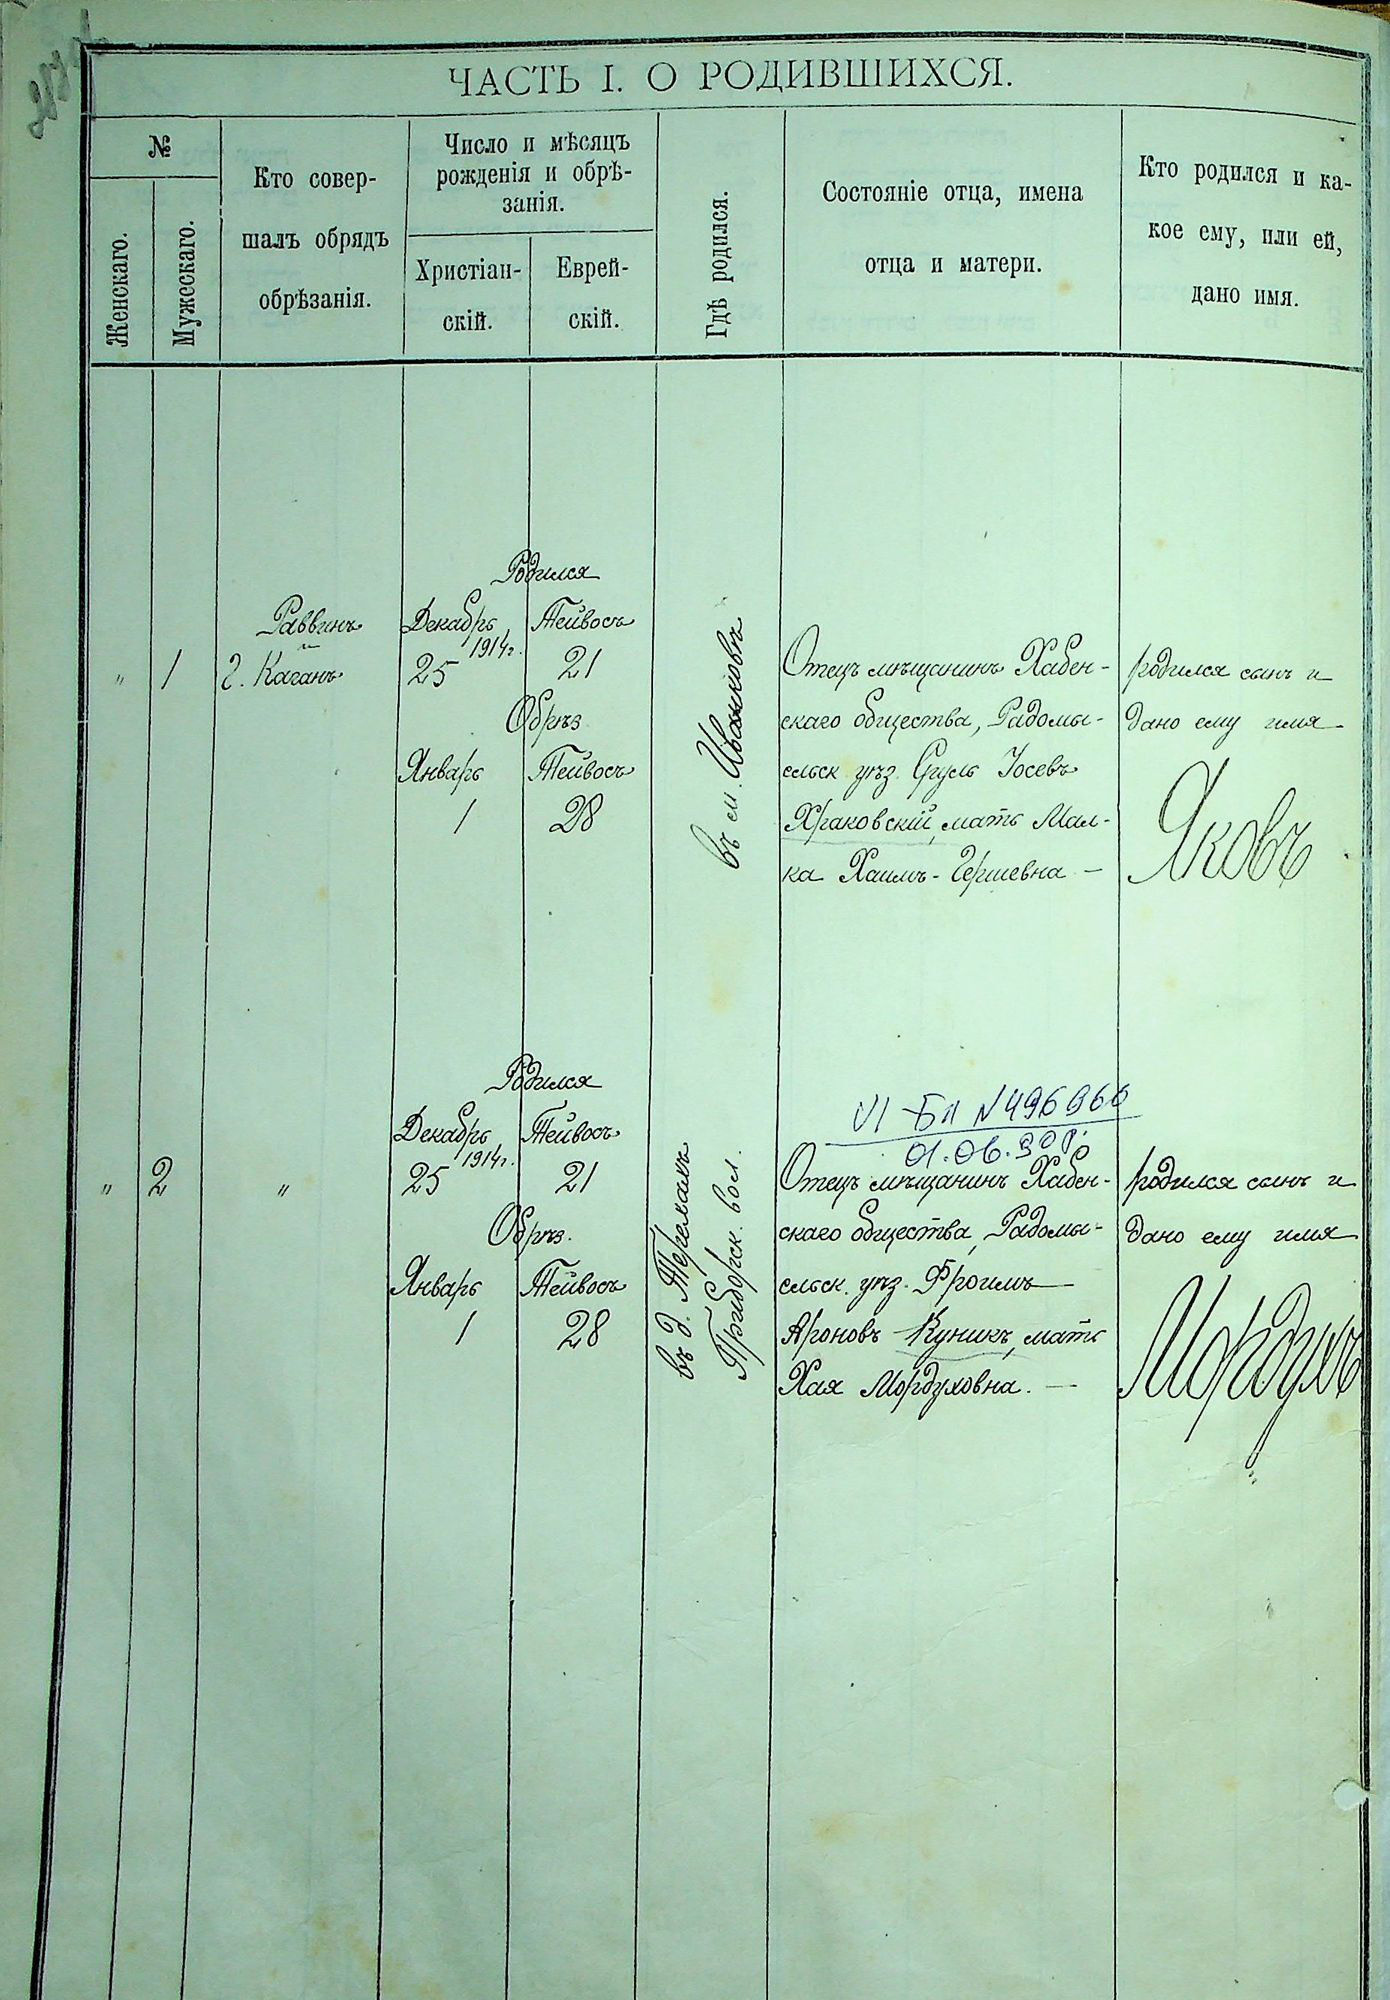 ЧАСТЬ I. О РОДИВШИХСЯ.
№
Женскаго.
Мужескаго.
Кто совер-
шалъ обрядъ
обрѣзанія.
Число и мѣсяцъ
рожденія и обрѣ-
занія.
Христіан-
скій.
Еврей-
скій.
Гдѣ родился.
Состояніе отца, имена
отца и матери.
Кто родился и ка-
кое ему, или ей,
дано имя.
"
1
Раввинъ
Г. Каганъ
Родился
Декабрь 1914 г.
25
Тейвосъ
21
Обрѣз.
Январь
1
Тейвосъ
28
въ м. Иванковъ
Отецъ мѣщанинъ Хабен-
скаго общества, Радомы-
сльск. уѣз. Сруль Іосевъ
Храковскій, мать Мал-
ка Хаимъ-Гершевна —
родился сынъ и
дано ему имя
Яковъ
"
2
"
Родился
Декабрь 1914 г.
25
Тейвосъ
21
Обрѣз.
Январь
1
Тейвосъ
28
въ д. Теремахъ
Приборск. вол.
VI-БП N 496966
01.06.90 г.
Отецъ мѣщанинъ Хабен-
скаго общества, Радомы-
сльск. уѣз. Фроимъ
Ароновъ Куникъ, мать
Хая Мордуховна. —
родился сынъ и
дано ему имя
Мордухъ